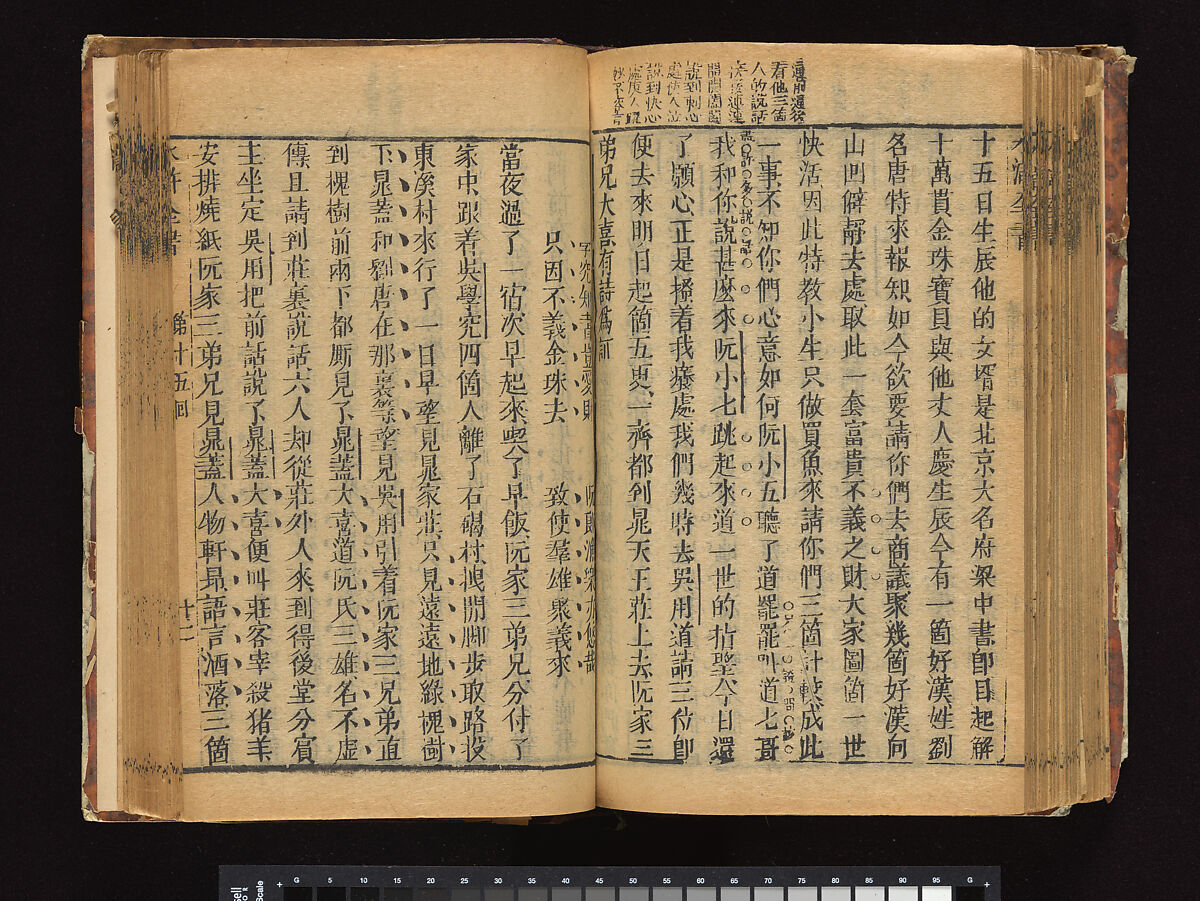 遭前遭後
看他三箇
人的說話
說到刺心
處使人泣
說到快心
十五日生辰他的女壻是北京大名府梁中書卽目起解
十萬貫金珠寶貝與他丈人慶生辰今有一箇好漢姓劉
名唐特來報知如今欲要請你們去商議聚幾箇好漢向
山凹僻靜去處取此一套富貴不義之財大家圖箇一世
快活因此特教小生只做買魚來請你們三箇計較成此
一事不知你們心意如何阮小五聽了道罷罷叫道七哥
我和你說甚麼來阮小七跳起來道一世的指望今日還
了願心正是搔着我癢處我們幾時去吳用道請三位卽
便去來明日起箇五更一齊都到晁天王莊上去阮家三
弟兄大喜有詩爲証
只因不義金珠去　致使羣雄聚義來
當夜過了一宿次早起來喫了早飯阮家三弟兄分付了
家中跟着吳學究四箇人離了石碣村拽開脚步取路投
東溪村來行了一日早望見晁家莊只見遠遠地綠槐樹
下晁蓋和劉唐在那裏等望見吳用引着阮家三兄弟直
到槐樹前兩下都厮見了晁蓋大喜道阮氏三雄名不虛
傳且請到莊裏說話六人却從莊外人來到得後堂分賓
主坐定吳用把前話說了晁蓋大喜便叫莊客宰殺猪羊
安排燒紙阮家三弟兄見晁蓋人物軒昂語言洒落三箇
第十五回
十二
0 5 10 15 20 25 30 35 40 45 50 55 60 65 70 75 80 85 90 95